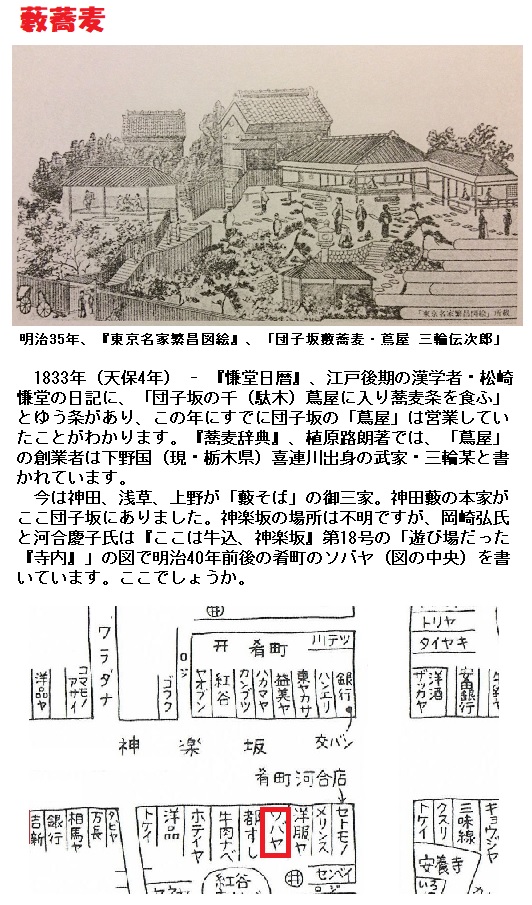 藪蕎麦
「東京名家繁昌図絵」所載
明治35年、『東京名家繁昌図絵』、「団子坂藪蕎麦・蔦屋 三輪伝次郎」
1833年（天保4年） - 『慊堂日暦』、江戸後期の漢学者・松崎
慊堂の日記に、「団子坂の千（駄木）蔦屋に入り蕎麦条を食ふ」
とゆう条があり、この年にすでに団子坂の「蔦屋」は営業してい
たことがわかります。『蕎麦辞典』、植原路朗著では、「蔦屋」
の創業者は下野国（現・栃木県）喜連川出身の武家・三輪某と書
かれています。
今は神田、浅草、上野が「藪そば」の御三家。神田藪の本家が
ここ団子坂にありました。神楽坂の場所は不明ですが、岡崎弘氏
と河合慶子氏は『ここは牛込、神楽坂』第18号の「遊び場だった
『寺内』」の図で明治40年前後の肴町のソバヤ（図の中央）を書
いています。ここでしょうか。
ワラダナ
洋品ヤ
コマモノ
アサイ
ロジ
ゴラク
井
肴町
川テツ
ヤオブン
紅谷
カンブツ
ハカマヤ
益美ヤ
東ヤカサ
ハンエリ
銀行
交バン
トリヤ
タイヤキ
ザッカヤ
洋酒
安田銀行
神楽坂
肴町河合店
吉新
銀行
相馬ヤ
万長
タビヤ
トケイ
洋品
ホテイヤ
牛肉ナベ
都すし
ソバヤ
洋服ヤ
メリンス
セトモノ
センベイ
ロージ
井
紅谷
トケイ
クスリ
三味線
キョウジヤ
安養寺
いろ